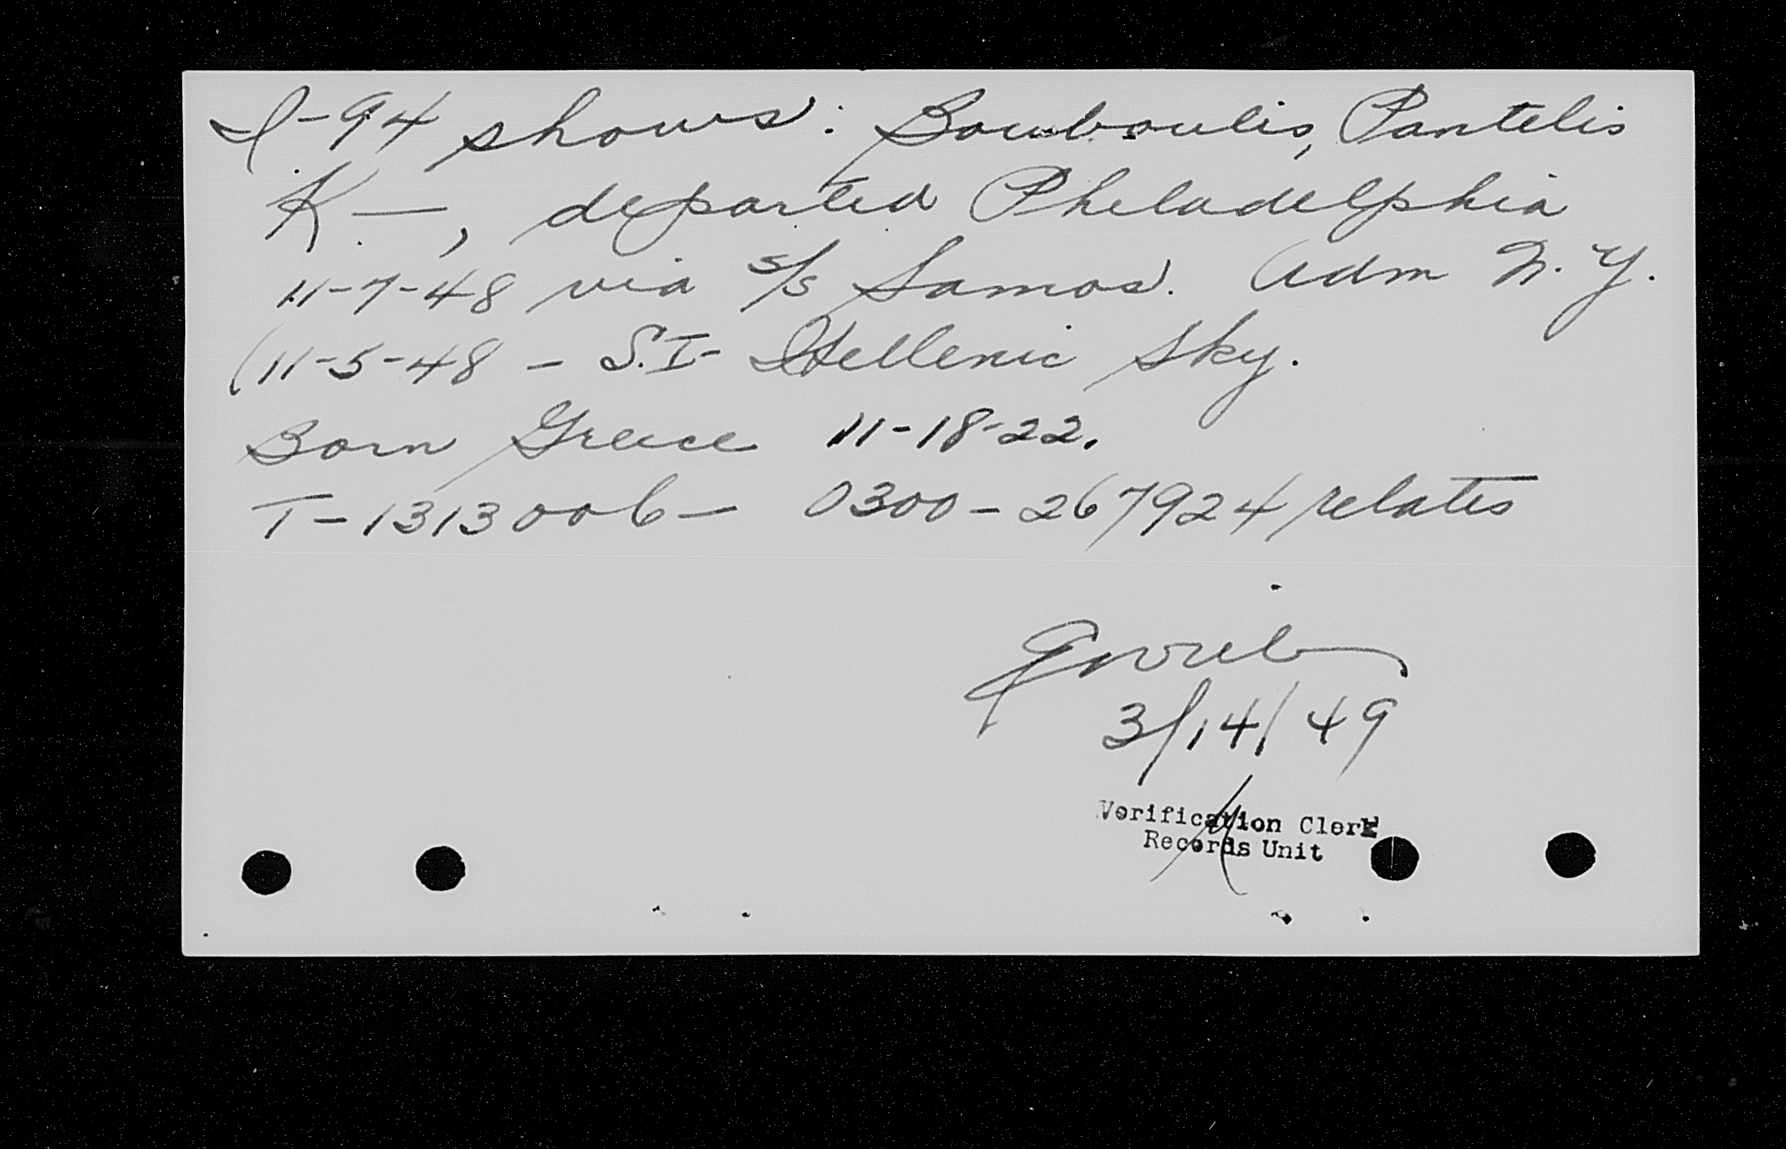 I-94 shows: Bouboulis, Pantelis
K—, departed Philadelphia
11-7-48 via s/s Samos. Adm N.Y.
(11-5-48 - S.I- Hellenic Sky.
Born Greece 11-18-22.
T-1313006- 0300-267924 relates
3/14/49
Verification Clerk
Records Unit